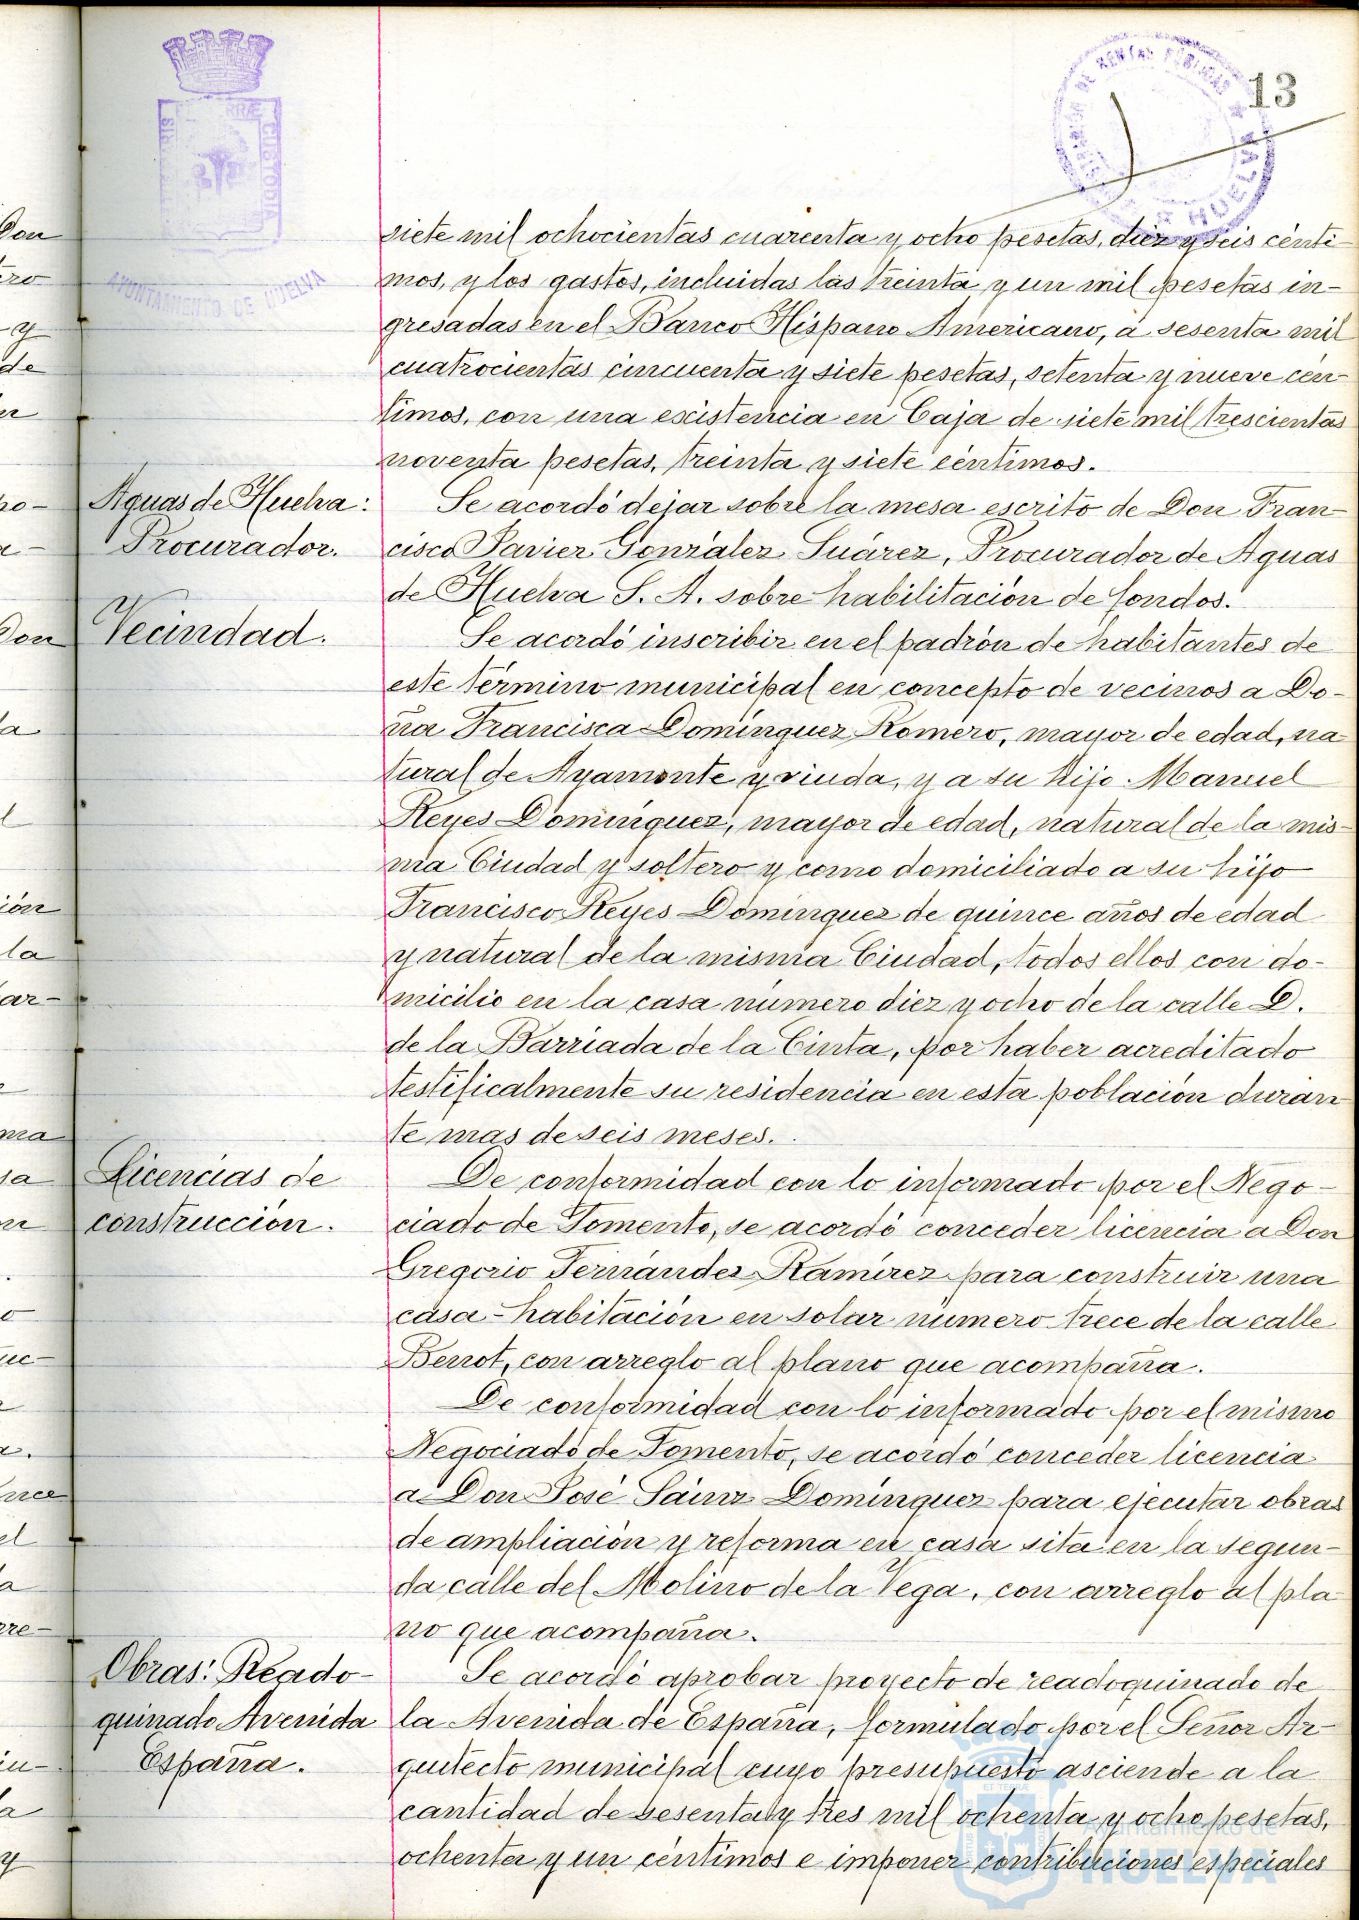 13
AYUNTAMIENTO DE HUELVA
siete mil ochocientas cuarenta y ocho pesetas, diez y seis cénti-
mos, y los gastos, incluidas las treinta y un mil pesetas in-
gresadas en el Banco Hispano Americano, a sesenta mil
cuatrocientas cincuenta y siete pesetas, setenta y nueve cén-
timos, con una existencia en Caja de siete mil trescientas
noventa pesetas, treinta y siete céntimos.
Aguas de Huelva:
Procurador.
Se acordó dejar sobre la mesa escrito de Don Fran-
cisco Javier González Suárez, Procurador de Aguas
de Huelva S. A. sobre habilitación de fondos.
Vecindad.
Se acordó inscribir en el padrón de habitantes de
este término municipal en concepto de vecinos a Do-
ña Francisca Domínguez Romero, mayor de edad, na
tural de Ayamonte y viuda, y a su hijo Manuel
Reyes Domínguez, mayor de edad, natural de la mis-
ma Ciudad y soltero y como domiciliado a su hijo
Francisco Reyes Domínguez de quince años de edad
y natural de la misma Ciudad, todos ellos con do-
micilio en la casa número diez y ocho de la calle D.
de la Barriada de la Cinta, por haber acreditado
testificalmente su residencia en esta población duran
te mas de seis meses.
Licencias de
construcción.
De conformidad con lo informado por el Nego-
ciado de Fomento, se acordó conceder licencia a Don
Gregorio Fernández Ramírez para construir una
casa-habitación en solar número trece de la calle
Berrot, con arreglo al plano que acompaña.
De conformidad con lo informado por el mismo
Negociado de Fomento, se acordó conceder licencia
a Don José Sáinz Domínguez para ejecutar obras
de ampliación y reforma en casa sita en la segun-
da calle del Molino de la Vega, con arreglo al pla
no que acompaña.
Obras: Reado-
quinado Avenida
España.
Se acordó aprobar proyecto de readoquinado de
la Avenida de España, formulado por el Señor Ar-
quitecto municipal cuyo presupuesto asciende a la
cantidad de sesenta y tres mil ochenta y ocho pesetas,
ochenta y un céntimos e imponer contribuciones especiales
Ayuntamiento de
HUELVA